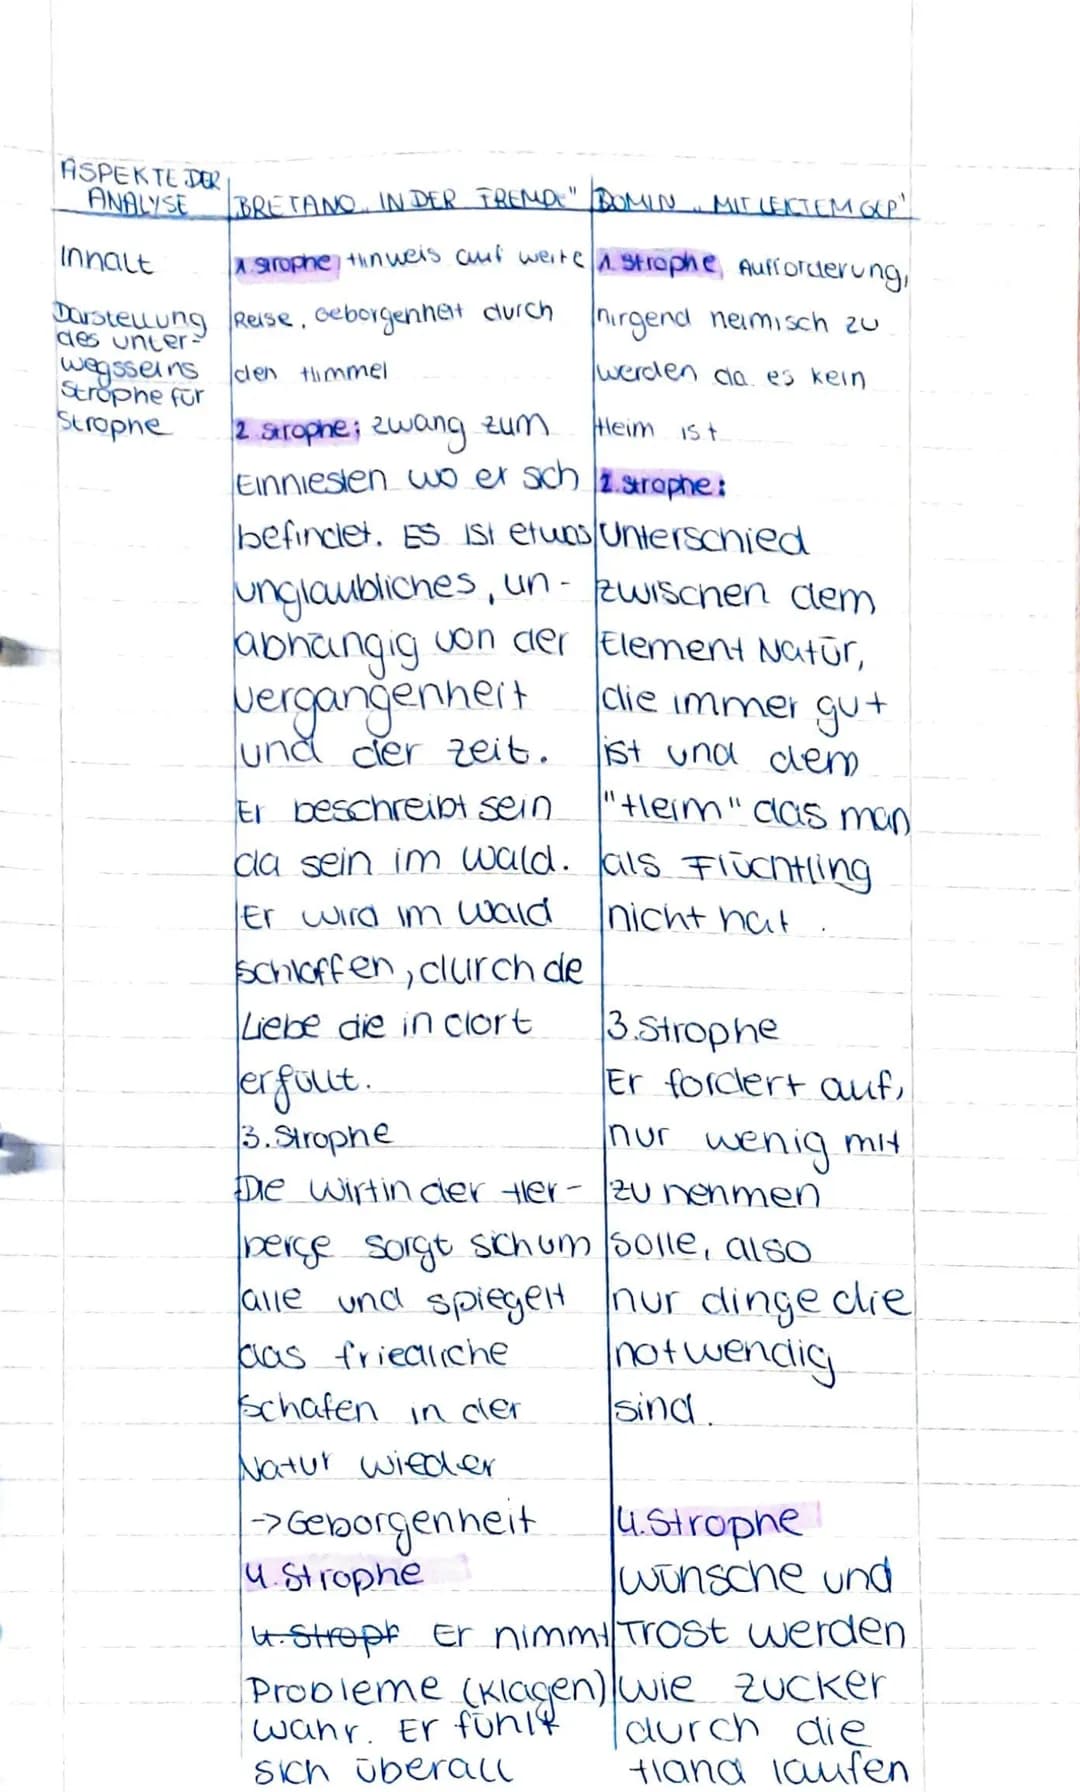 ASPEKTE DER
ANALYSE
BRETANO „IN DER FREMDE" DOMIN „MIT LEKTEM GEP"
Innalt
Darstellung
des unter-
wegsseins
Strophe für
Strophe
1. Strophe; Hinweis auf weite
Reise, Geborgenheit durch
den Himmel
2. Strophe; zwang zum
Einniesten wo er sich
befindet. ES ist etwas
unglaubliches, un-
abhängig von der
Vergangenheit
und der zeit.
Er beschreibt sein
da sein im Wald.
Er wird im Wald
schlaffen, durch de
Liebe die in dort
erfüllt.
3. Strophe
Die Wirtin der Her-
berge sorgt sich um
alle und spiegelt
das friedliche
Schafen in der
Natur wieder
-> Geborgenheit
4. Strophe
4. Stroph Er nimmt
Probleme (Klagen)
wahr. Er fühlt
sich überall
1. Strophe, Aufforderung,
nirgend heimisch zu
werden da es kein
Heim ist
2. Strophe:
Unterschied
zwischen dem
Element Natur,
die immer gut
ist und dem
"Heim" das man
als Flüchtling
nicht hat.
3. Strophe
Er fordert auf,
nur wenig mit
zu nehmen
solle, also
nur dinge die
notwendig
sind.
4. Strophe
wünsche und
Trost werden
wie zucker
durch die
Hand laufen